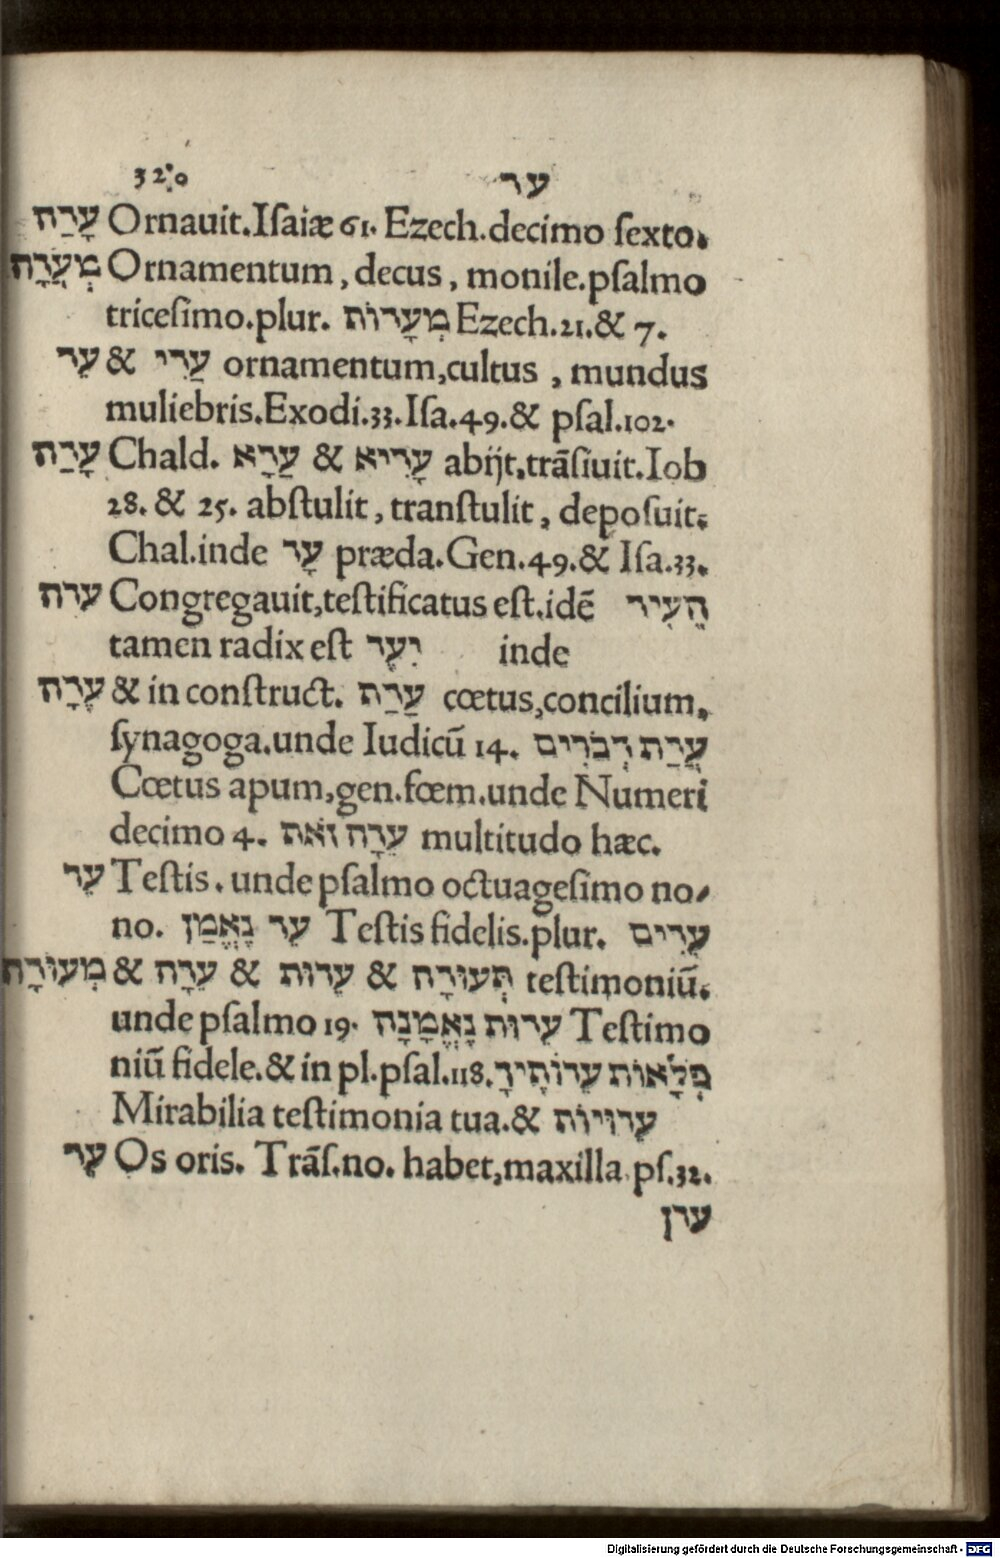 320 עד
עָדַה Ornauit. Iſaiæ 61. Ezech. decimo ſexto.
מְעֲדָה Ornamentum, decus, monile. pſalmo
triceſimo. plur. מְעָדוֹת Ezech. 21. & 7.
עֵד & עַדִי ornamentum, cultus, mundus
muliebris. Exodi. 33. Iſa. 49. & pſal. 102.
עָדַה Chald. עַדָא & עָדִיא abijt. trāſiuit. Iob
28. & 25. abſtulit, tranſtulit, depoſuit.
Chal. inde עָד præda. Gen. 49. & Iſa. 33.
עדה Congregauit, teſtificatus eſt. idē הֱעִיד
tamen radix eſt יעד inde
עֵדָה & in conſtruct. עַדַת cœtus, concilium,
ſynagoga. unde Iudicū 14. עֲדַת דְבֹרִים
Cœtus apum, gen. fœm. unde Numeri
decimo 4. עֵדָה זֹאת multitudo hæc.
עֵד Teſtis. unde pſalmo octuageſimo no⸗
no. עֵד נֶאֱמַן Teſtis fidelis. plur. עֵדִים
מְעוּדָה & עֵדָה & עֵדוּת & תְּעוּדָה teſtimoniū.
unde pſalmo 19. עֵדוּת נֶאֱמָנָה Teſtimo
niū fidele. & in pl. pſal. 118. פְּלָאוֹת עֵדוֹתֶיךָ
Mirabilia teſtimonia tua. & עֵדְוֹוֹת
עֲד Os oris. Trāſ. no. habet, maxilla pſ. 32.
עדן
Digitalisierung gefördert durch die Deutsche Forschungsgemeinschaft - DFG